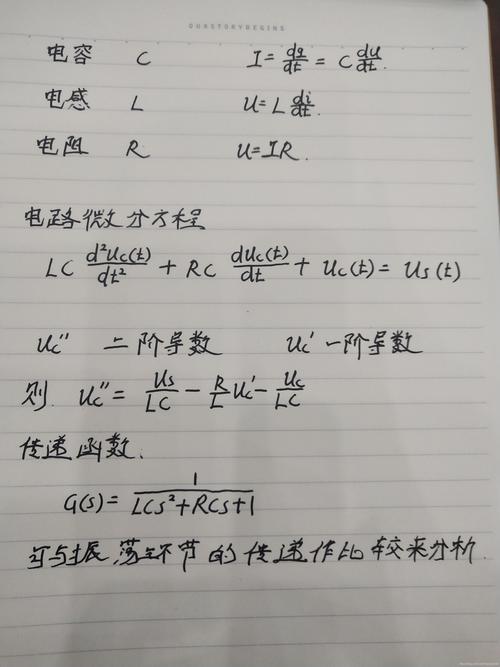 OURSTORYBEGINS
电容 C I = dq/dt = C du/dt.
电感 L U = L di/dt.
电阻 R U = IR.
电路微分方程
LC d²Uc(t)/dt² + RC dUc(t)/dt + Uc(t) = Us(t)
Uc'' 二阶导数 Uc' 一阶导数
则 Uc'' = Us/LC - R/L Uc' - Uc/LC
传递函数.
G(s) = 1/(LCs²+RCs+1)
可与振荡环节的传递作比较来分析.